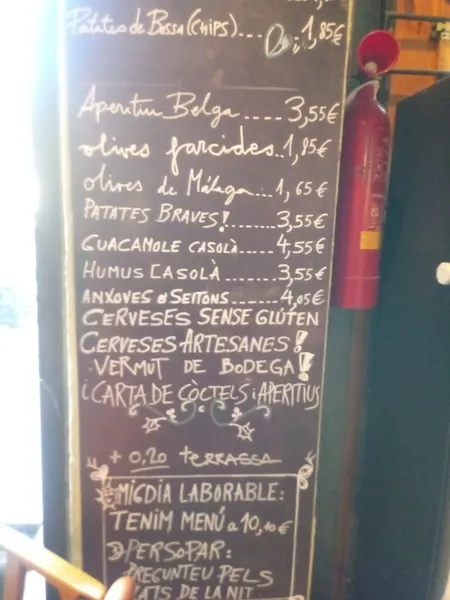 Patates de Bossa (CHIPS)... 1,85€
Aperitiu Belga.... 3,55€
olives farcides..1,85€
olives de Màlaga... 1,65€
PATATES BRAVES!..... 3,55€
GUACAMOLE CASOLÀ..... 4,55€
HUMUS CASOLÀ........ 3,55€
ANXOVES o SEITONS....... 4,05€
CERVESES SENSE GLÚTEN
CERVESES ARTESANES!
VERMUT DE BODEGA!
i CARTA DE CÒCTELS i APERITIUS
+ 0,20 terrassa
MIGDIA LABORABLE:
TENIM MENÚ a 10,10€
PER SOPAR:
PREGUNTEU PELS
DE LA NIT